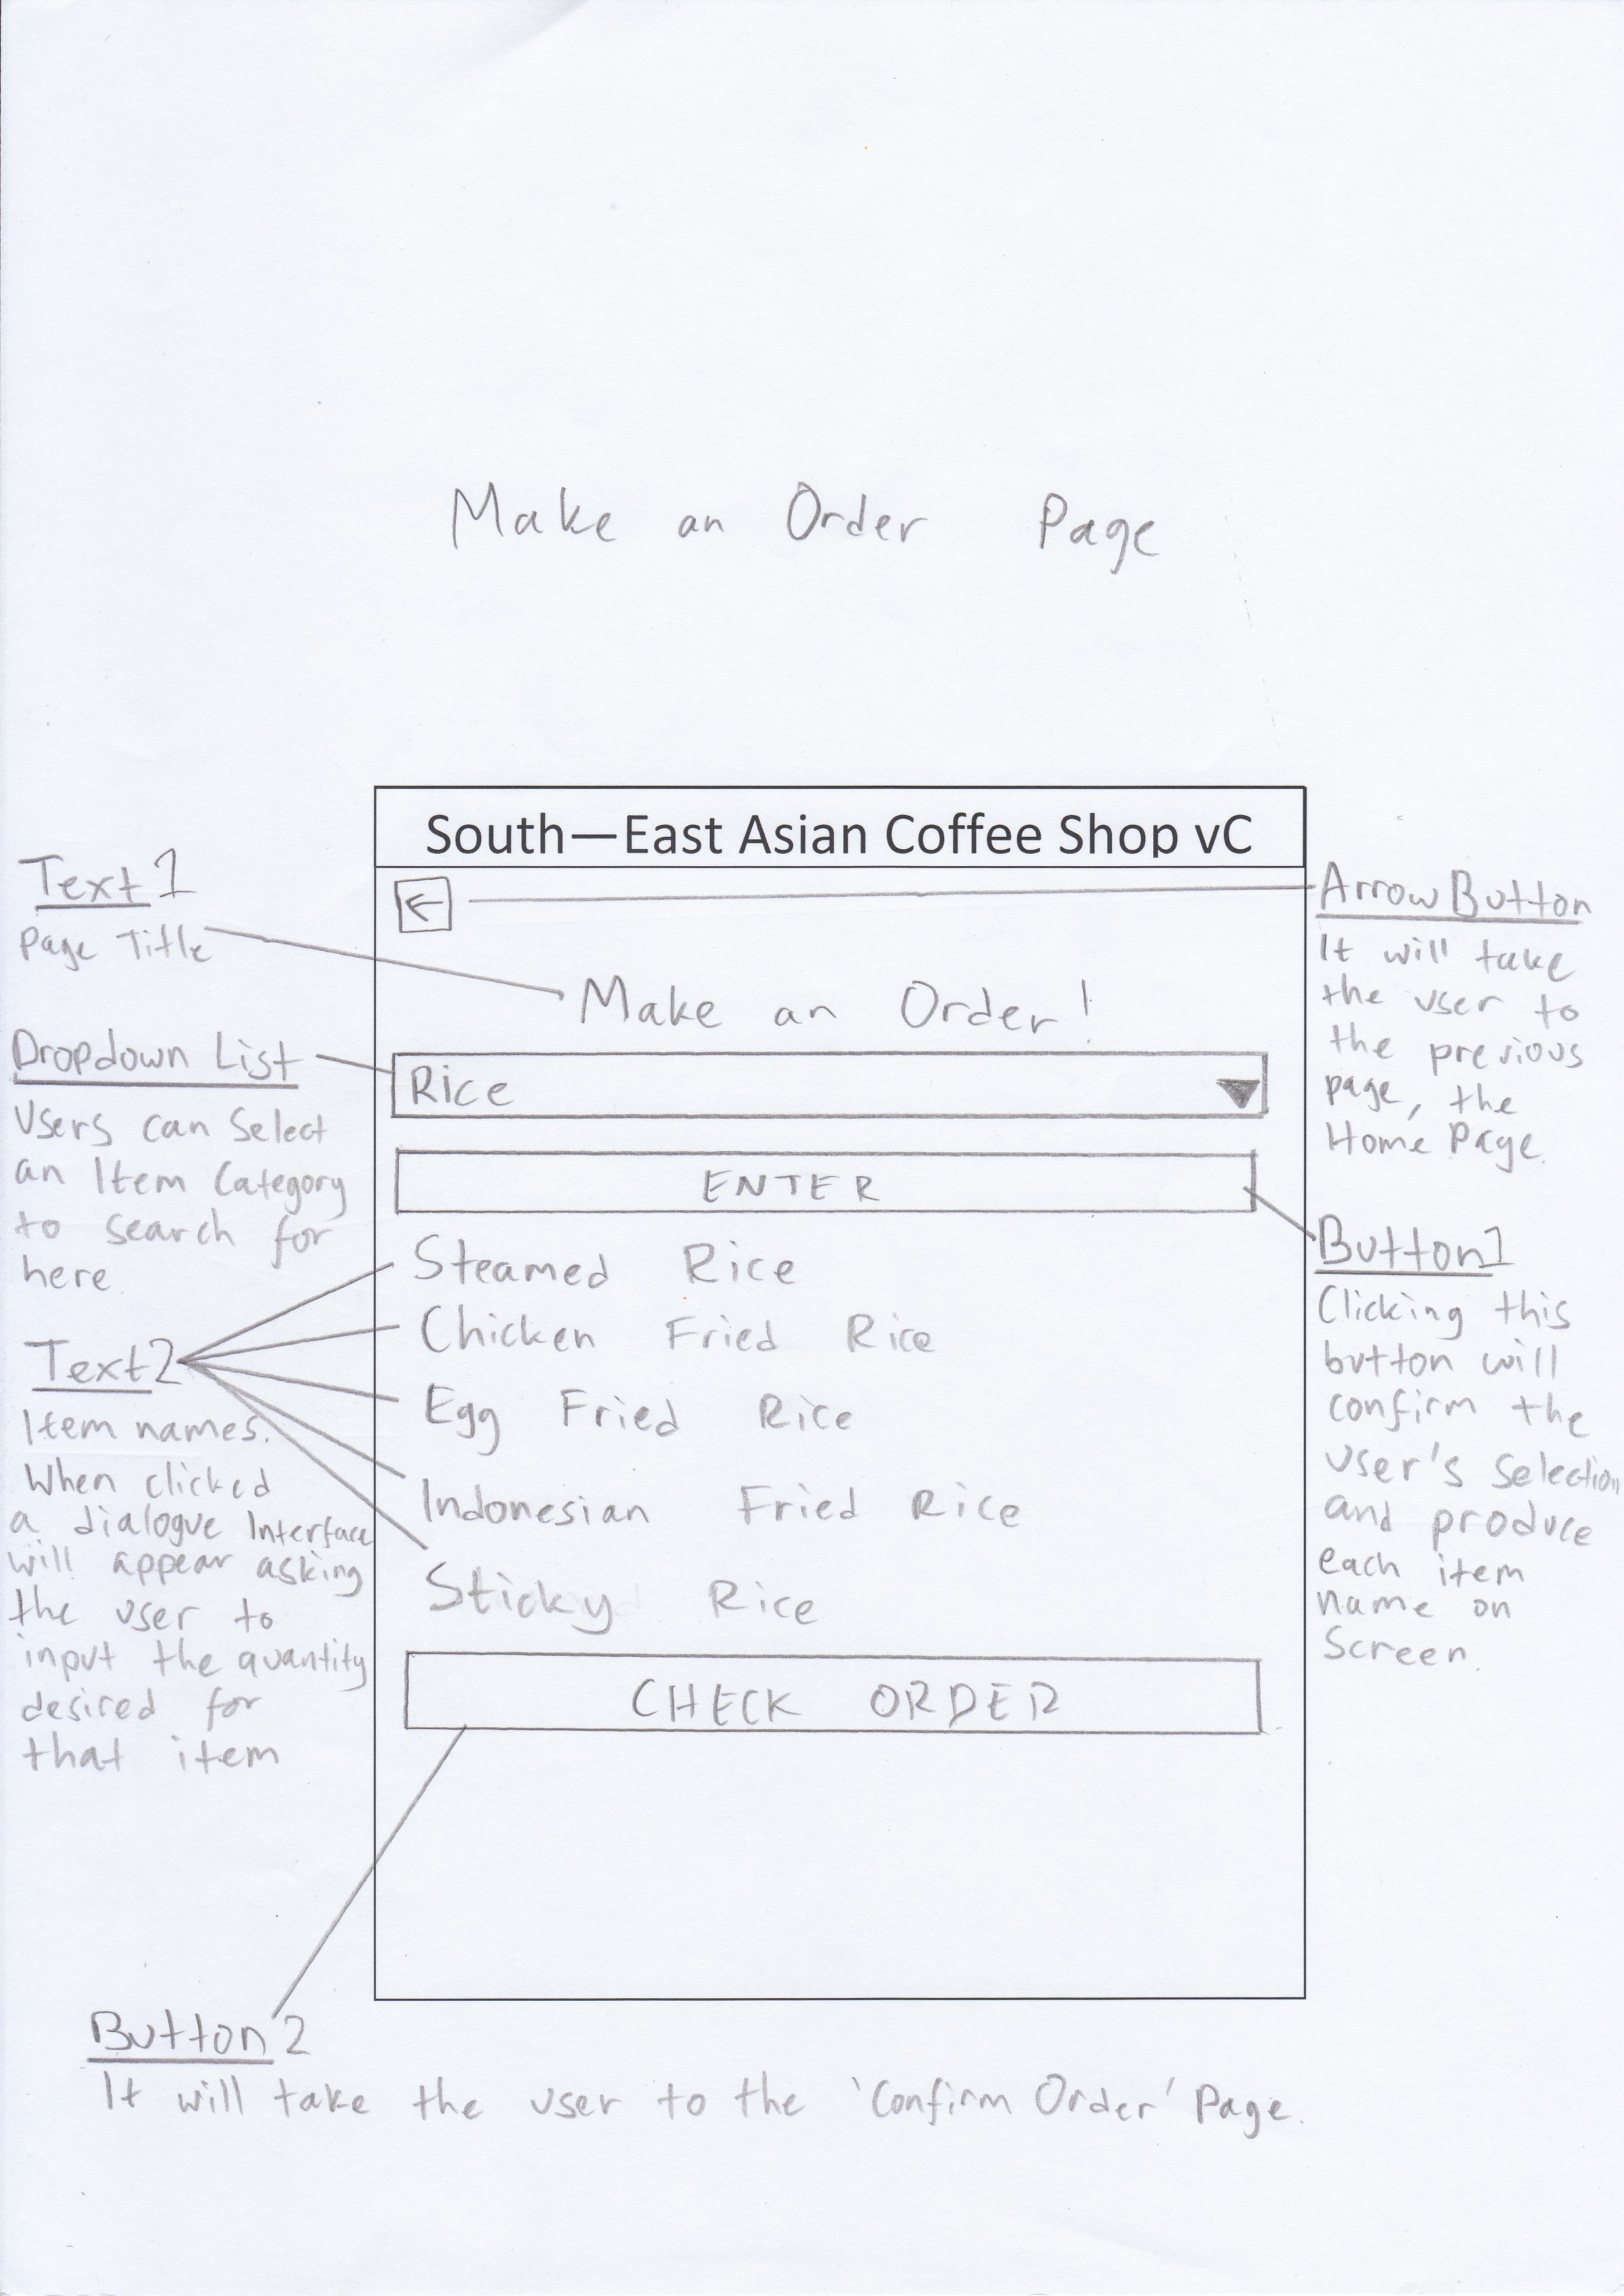 Make an Order Page
South—East Asian Coffee Shop vC
Text 1
Page Title
Dropdown List
Users can Select
an Item Category
to search for
here.
Text 2
Item names.
When clicked
a dialogue Interface
will appear asking
the user to
input the quantity
desired for
that item
Make an Order!
Rice
ENTER
Steamed Rice
Chicken Fried Rice
Egg Fried Rice
Indonesian Fried Rice
Sticky Rice
CHECK ORDER
Arrow Button
It will take
the user to
the previous
page, the
Home Page.
Button1
Clicking this
button will
confirm the
user's selection
and produce
each item
name on
Screen.
Button 2
It will take the user to the 'Confirm Order' Page.